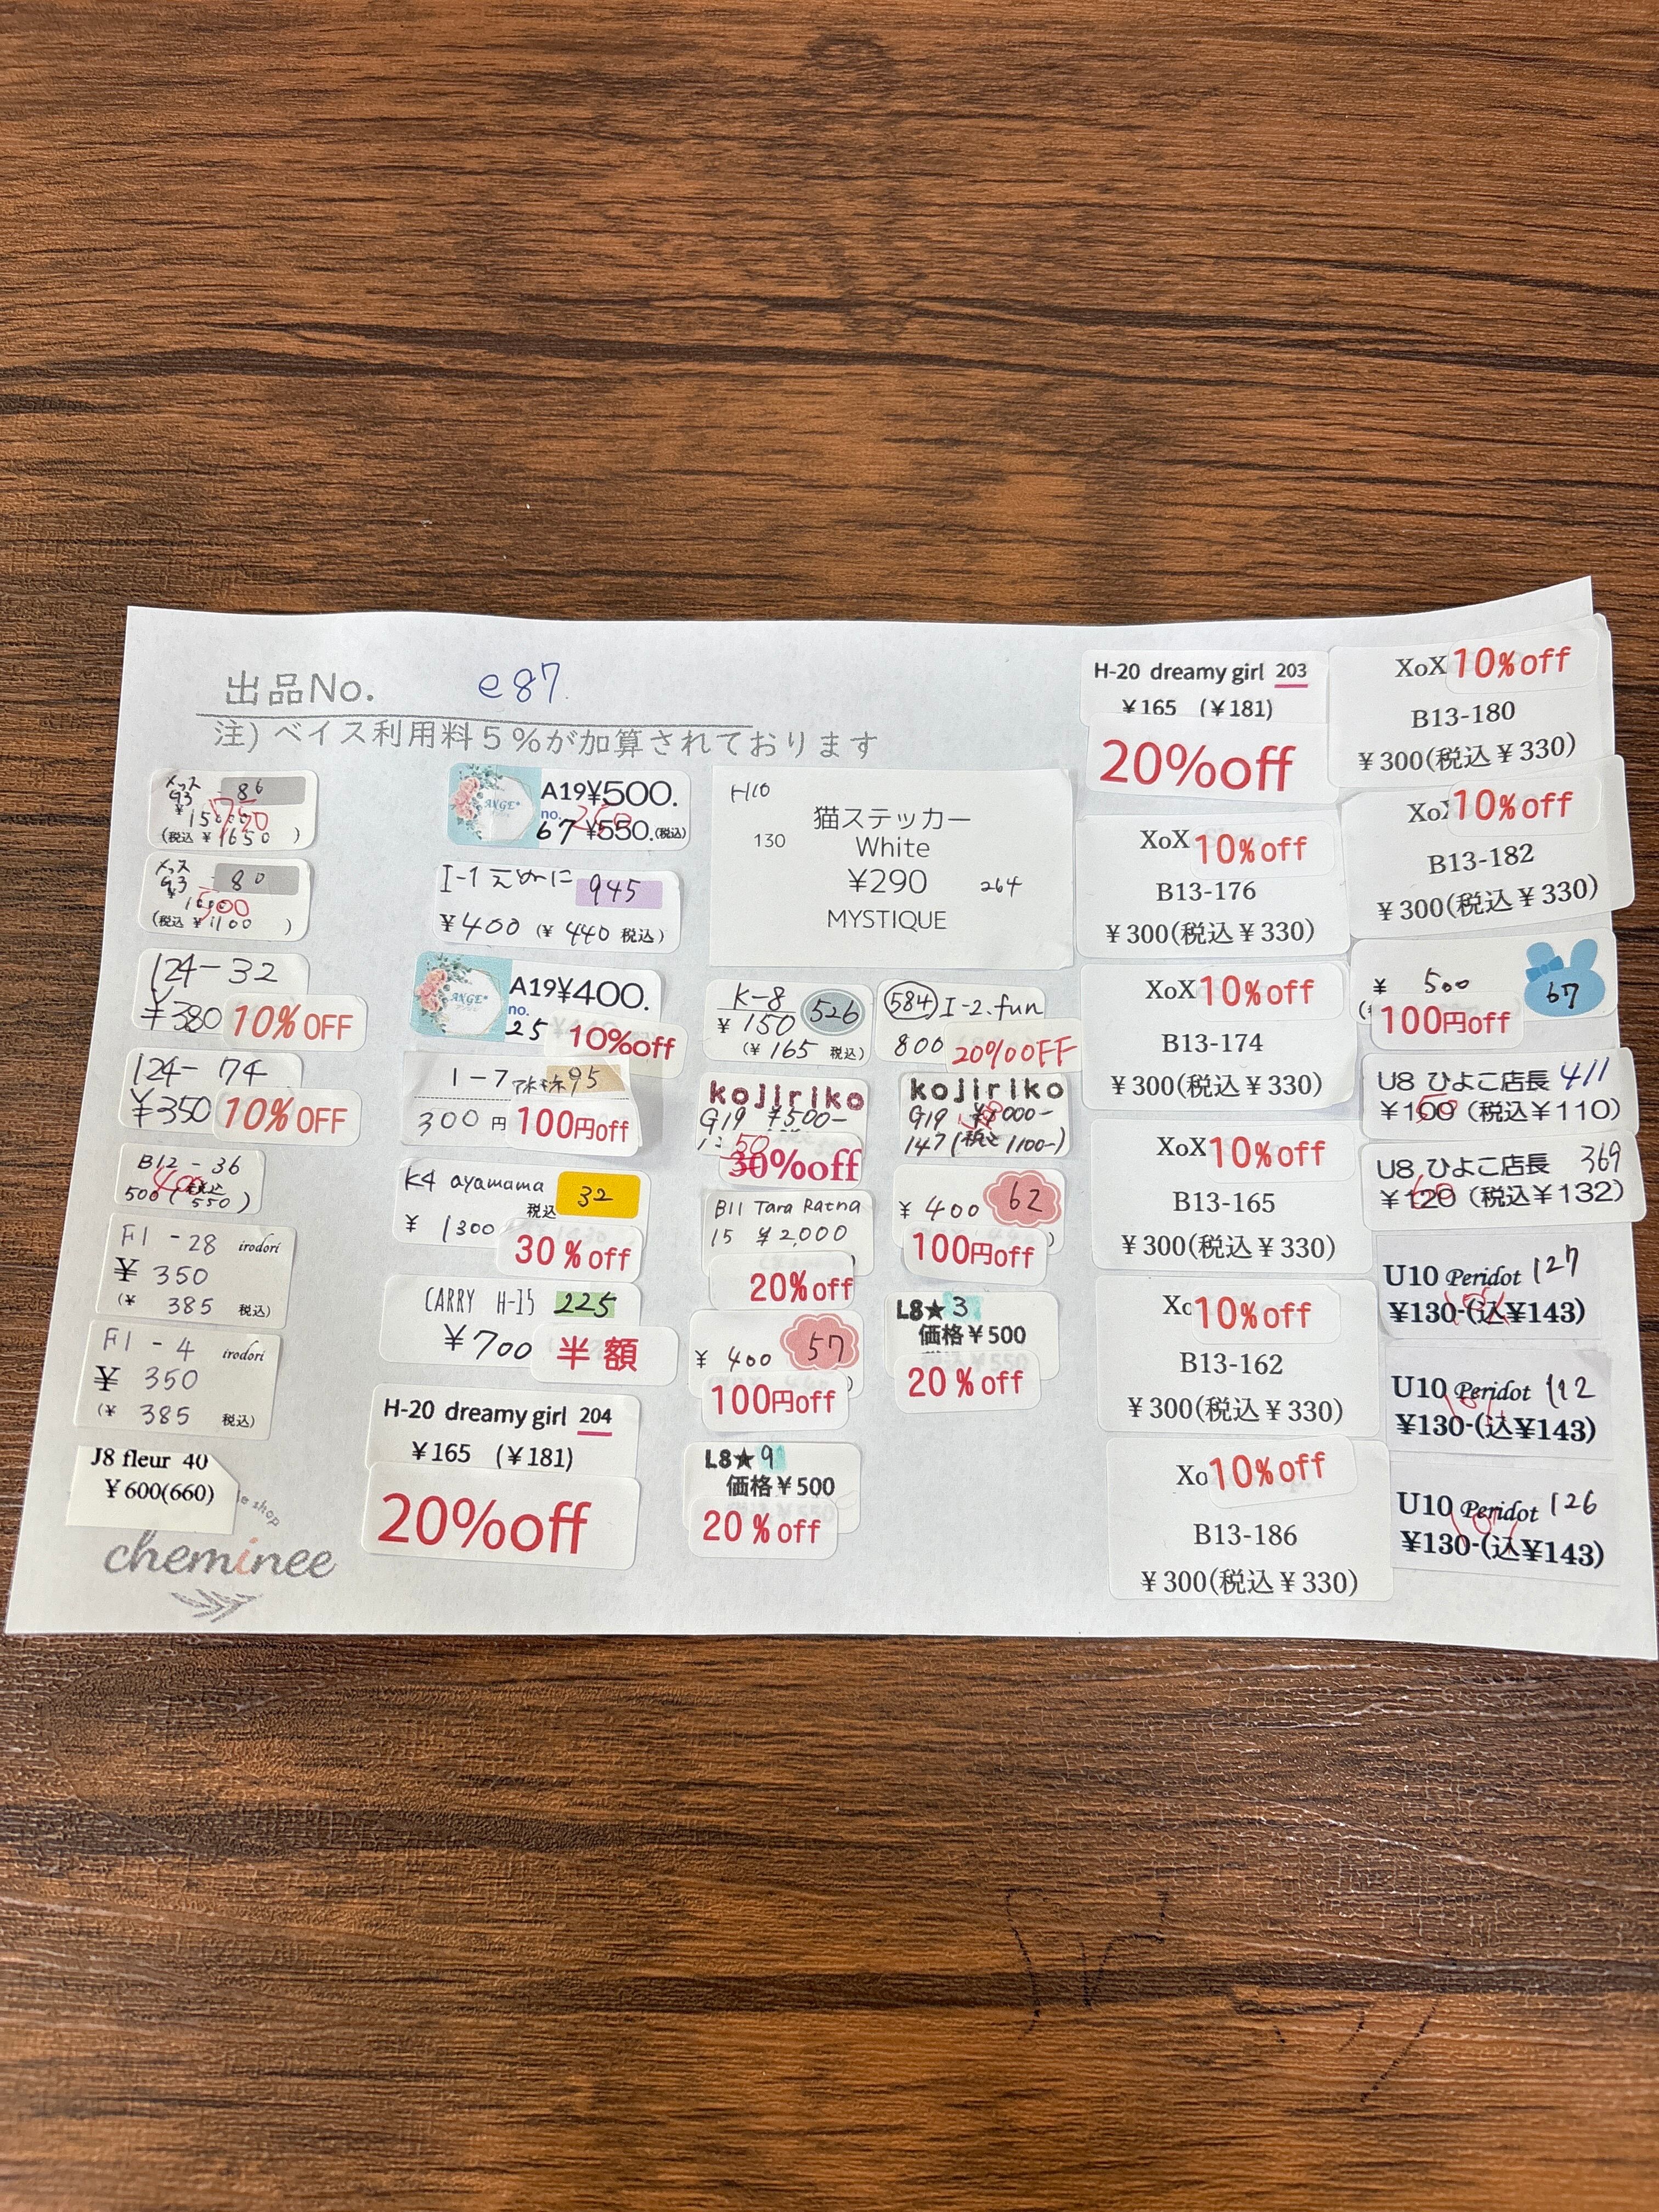 出品No. e87.
注) ベイス利用料５%が加算されております
G3 86
750
(税込 ¥1650 )
G3 80
500
(税込 ¥1100 )
124-32
¥380 10%OFF
124-74
¥350 10%OFF
B12-36
400
500(税込550)
F1 -28 irodori
¥ 350
(¥ 385 税込)
F1 -4 irodori
¥ 350
(¥ 385 税込)
J8 fleur 40
¥600(660)
cheminee
ANGE* A19¥500.
no. 250
67 ¥550.(税込)
I-1 えめに 945
¥400 (¥ 440 税込)
ANGE* A19¥400.
no.
25 10%off
1-7 95
300 円 100円off
K4 ayamama 32
税込
¥ 1300
30%off
CARRY H-15 225
¥700 半額
H-20 dreamy girl 204
¥165 (¥181)
20%off
H10
猫ステッカー
130 White
¥290 264
MYSTIQUE
K-8 526
¥ 150
(¥ 165 税込)
584 I-2.fun
800 20%OFF
kojiriko
G19 ¥500-
50
30%off
kojiriko
G19 ¥1000-
147(税込1100-)
B11 Tara Ratna
15 ¥2,000
20%off
¥ 400 62
100円off
¥ 400 57
100円off
L8★3
価格¥500
20%off
L8★9
価格¥500
20%off
H-20 dreamy girl 203
¥165 (¥181)
20%off
XoX 10%off
B13-176
¥300(税込¥330)
XoX 10%off
B13-174
¥300(税込¥330)
XoX 10%off
B13-165
¥300(税込¥330)
10%off
B13-162
¥300(税込¥330)
10%off
B13-186
¥300(税込¥330)
XoX 10%off
B13-180
¥300(税込¥330)
10%off
B13-182
¥300(税込¥330)
¥ 500 67
100円off
U8 ひよこ店長 411
¥100 (税込¥110)
50
U8 ひよこ店長 369
¥120 (税込¥132)
60
U10 Peridot 127
¥130-(込¥143)
U10 Peridot 112
¥130-(込¥143)
U10 Peridot 126
¥130-(込¥143)